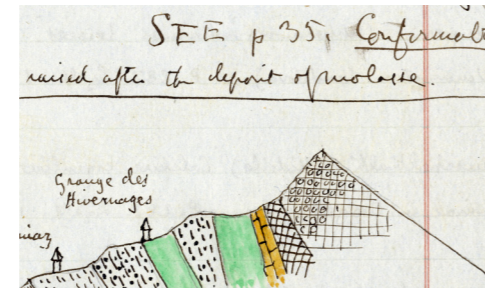 SEE p 35, Conformabl
raised after the deposit of molasse.
Grange des
Hivernages